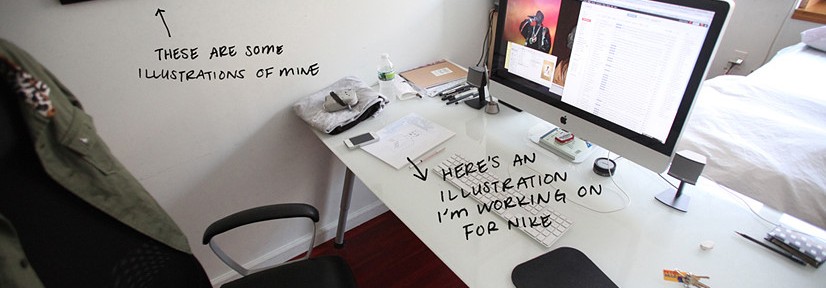 THESE ARE SOME
ILLUSTRATIONS OF MINE
HERE'S AN
ILLUSTRATION
I'M WORKING ON
FOR NIKE